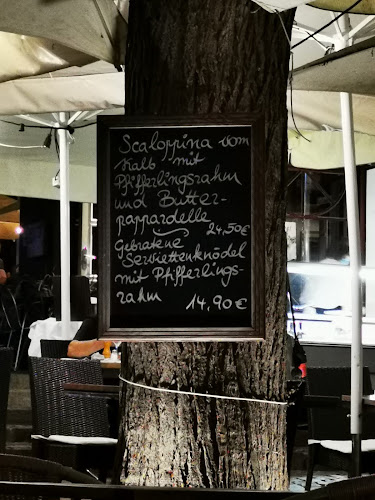 Scaloppina vom
Kalb mit
Pfifferlingsrahm
und Butter-
pappardelle
24,50€
Gebratene
Serviettenknödel
mit Pfifferlings-
rahm 14,90€